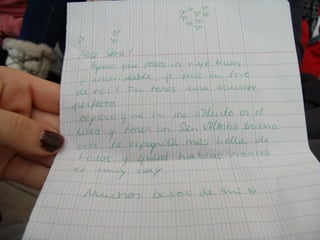 Hola Sara!
Espero que pases un viaje buen
y inolvidable, je suis in love
de toi! Tu tienes una sonrisa
perfecto
espero que tu me saludo en el
liseo y tener un San Valentin bueno
eres la española más bella de
todos y quand hablas
es muy sexy
Muchos besos de mi